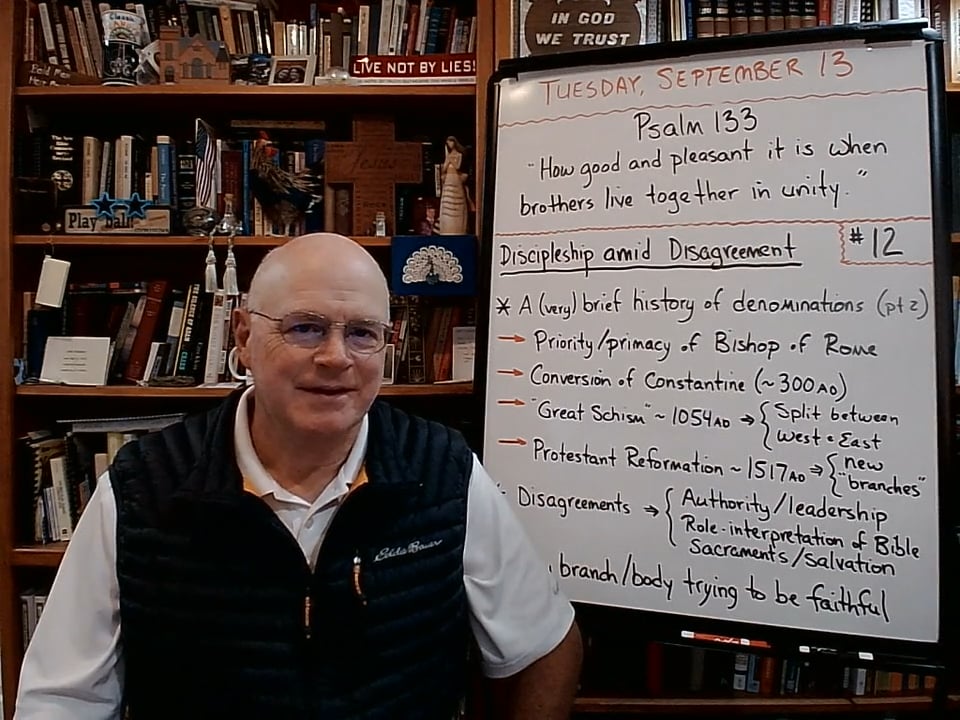 IN GOD
WE TRUST
LIVE NOT BY LIES!
Play Ball
Jesus
Eddie Bauer
TUESDAY, SEPTEMBER 13
Psalm 133
"How good and pleasant it is when
brothers live together in unity."
Discipleship amid Disagreement #12
* A (very) brief history of denominations (pt 2)
→ Priority/primacy of Bishop of Rome
→ Conversion of Constantine (~300 AD)
→ "Great Schism" ~ 1054 AD → { Split between
West + East
→ Protestant Reformation ~ 1517 AD → { new
"branches"
Disagreements → { Authority/leadership
Role-interpretation of Bible
Sacraments/salvation
branch/body trying to be faithful